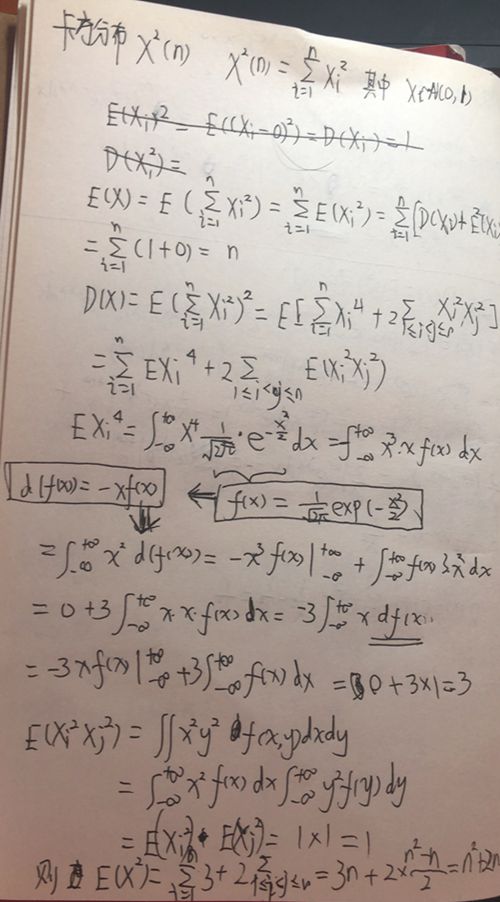 卡方分布 χ²(n) χ²(n) = ∑_{i=1}^{n} Xi² 其中 Xi~N(0,1)
E(Xi)² = E((Xi-0)²) = D(Xi) = 1
D(Xi²) =
E(X) = E(∑_{i=1}^{n} Xi²) = ∑_{i=1}^{n} E(Xi²) = ∑_{i=1}^{n} [D(Xi) + E²(Xi)
= ∑_{i=1}^{n} (1+0) = n
D(X) = E(∑_{i=1}^{n} Xi²)² = E[∑_{i=1}^{n} Xi⁴ + 2∑_{1≤i<j≤n} Xi²Xj²]
= ∑_{i=1}^{n} EXi⁴ + 2∑_{1≤i<j≤n} E(Xi²Xj²)
EXi⁴ = ∫_{-∞}^{+∞} x⁴ 1/√2π · e^{-x²/2} dx = ∫_{-∞}^{+∞} x³·x f(x) dx
d(f(x)) = -xf(x) ← f(x) = 1/√2π exp(-x²/2)
= ∫_{-∞}^{+∞} x² d(f(x)) = -x³ f(x)|_{-∞}^{+∞} + ∫_{-∞}^{+∞} f(x) 3x² dx
= 0 + 3∫_{-∞}^{+∞} x·x·f(x) dx = -3∫_{-∞}^{+∞} x df(x)
= -3xf(x)|_{-∞}^{+∞} + 3∫_{-∞}^{+∞} f(x) dx = 0 + 3×1 = 3
E(Xi²Xj²) = ∬ x²y² f(x,y)dxdy
= ∫_{-∞}^{+∞} x² f(x) dx ∫_{-∞}^{+∞} y² f(y) dy
= E(Xi²)·E(Xj²) = 1×1 = 1
则 E(X²) = ∑_{i=1}^{n} 3 + 2∑_{1≤i<j≤n} = 3n + 2×(n²-n)/2 = n²+2n